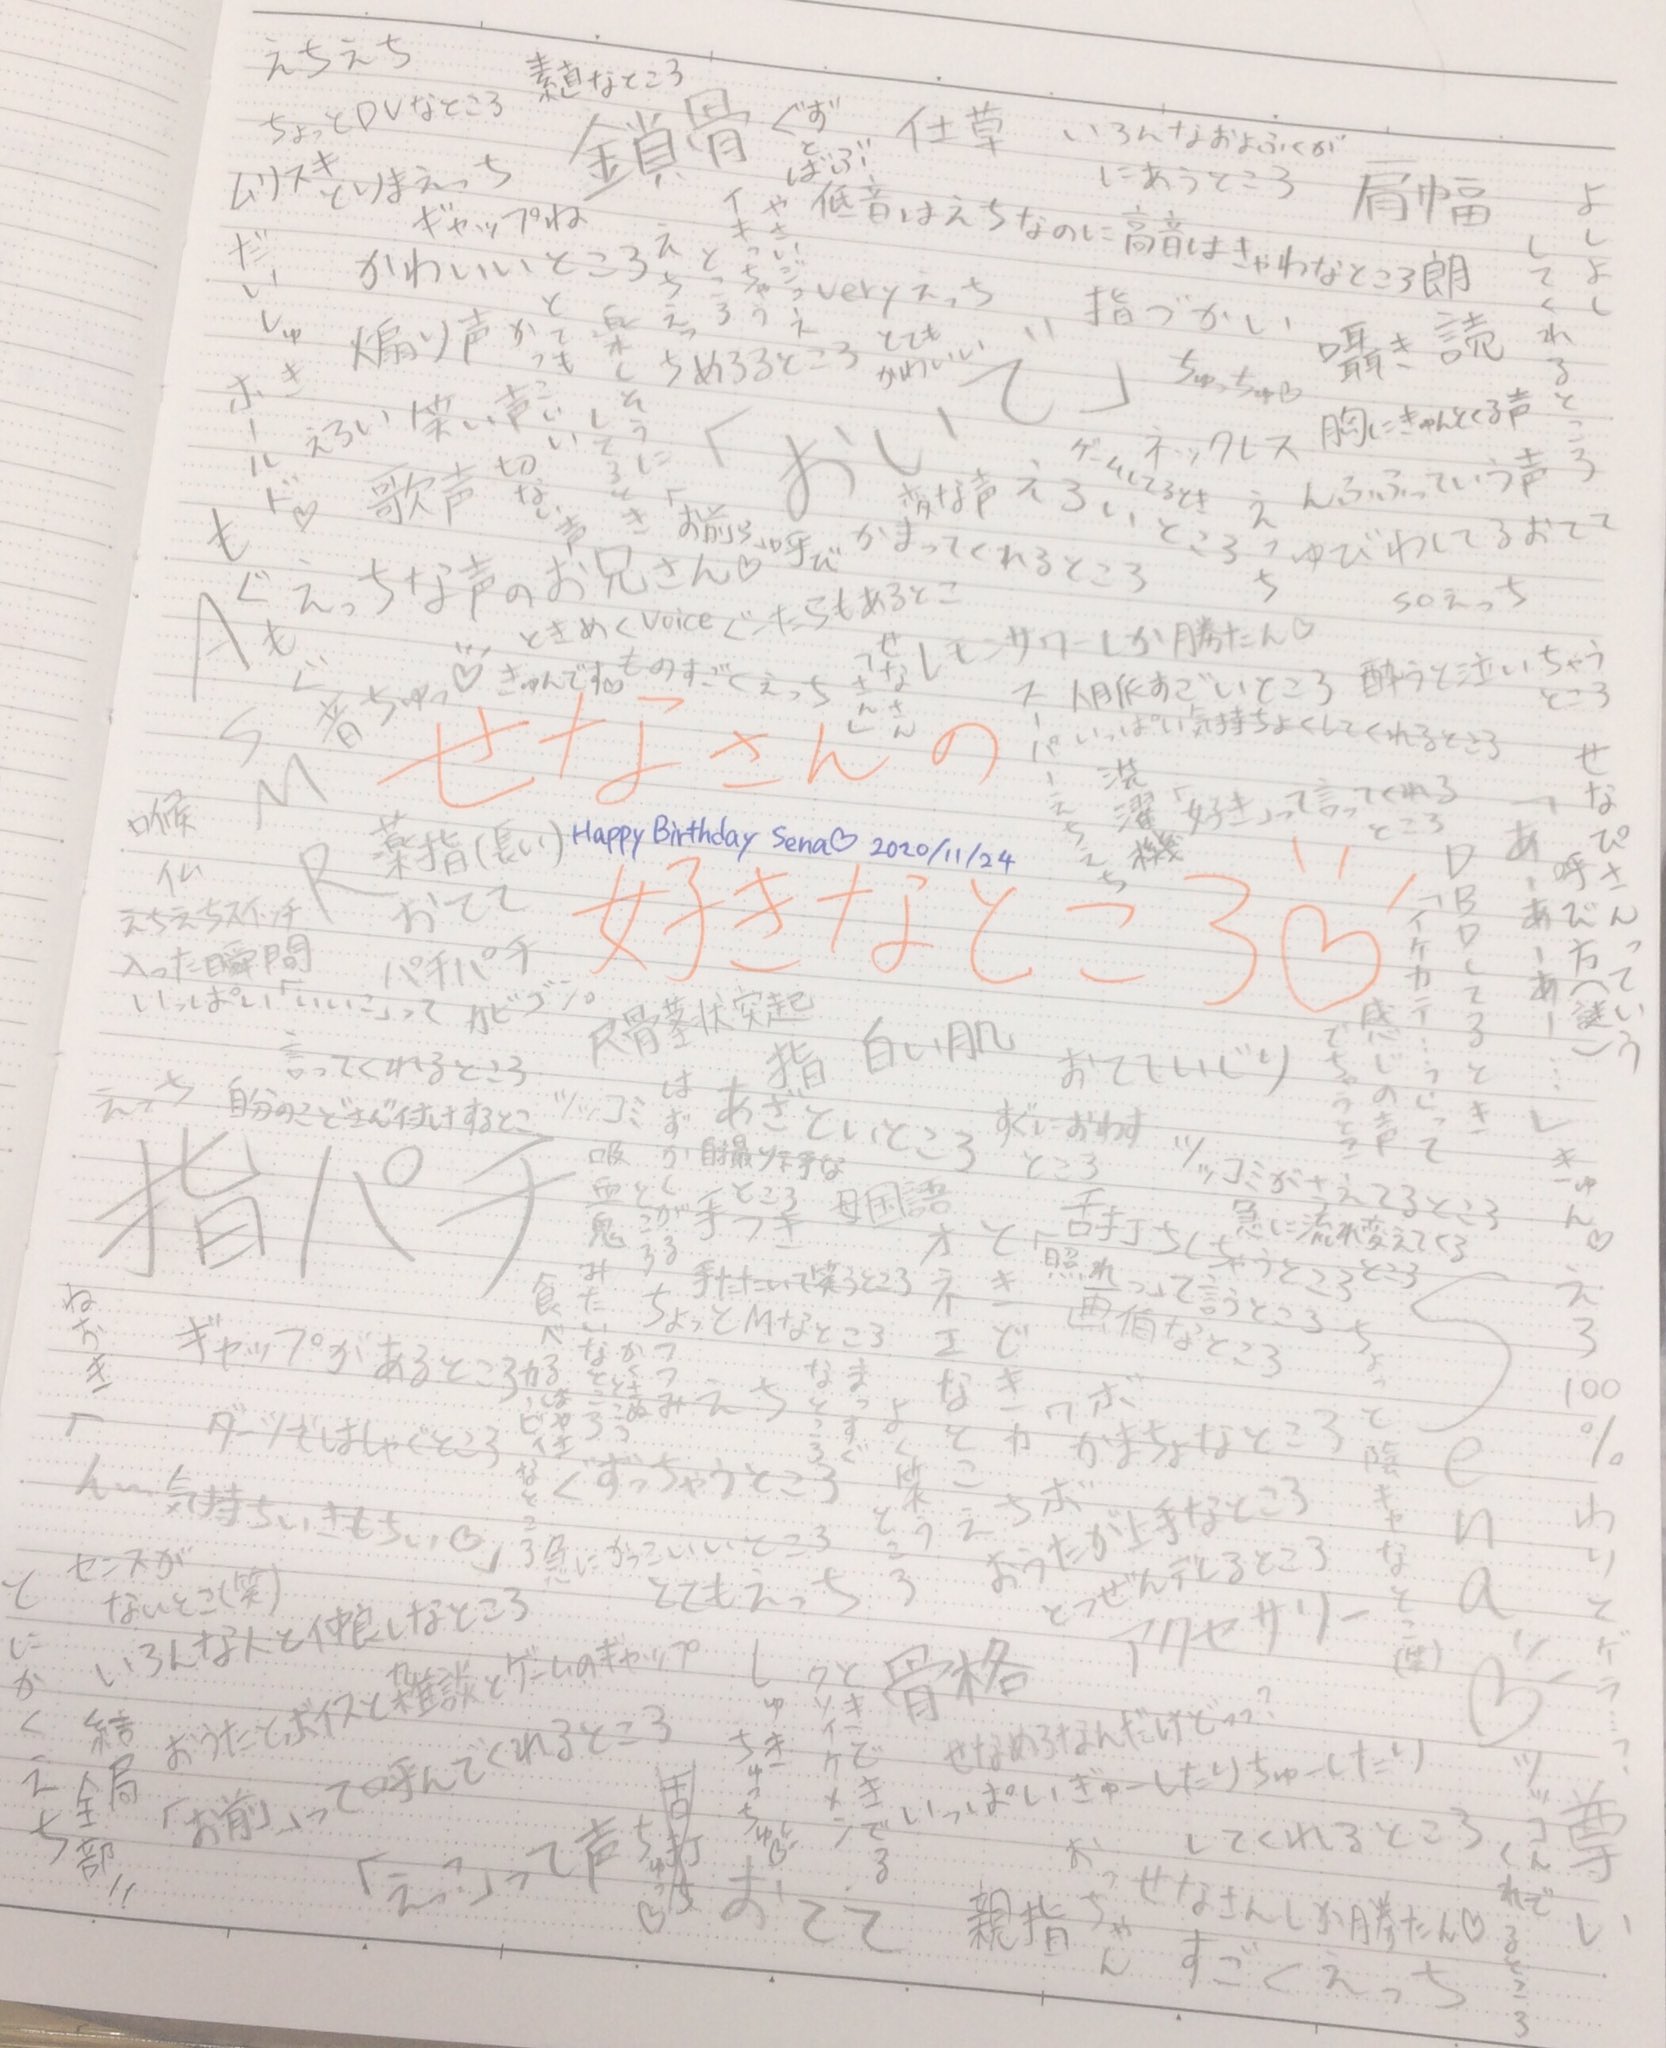 えちえち
素直なところ
ちょっとDVなところ
鎖骨
ぐずとばぶ
仕草
いろんなおようふくが
にあうところ
肩幅
よしよししてくれるところ
ムリスキ
とりまえっち
ギャップね
低音はえちなのに高音はきゃわなところ
朗読
だいしゅきホールド♡
かわいいところ
veryえっち
指づかい
囁き
煽り声
ちめろるところ
とてもかわいい
「おいで」
ちゅっちゅ♡
えろい笑い声
ネックレス
胸にきゅんとくる声
歌声
切ない声
楽しそうにしてるとき
ゲームしてるとき
えろいところ
んふふっていう声
「お前」呼び
かまってくれるところ
えっち
ゆびわしてるおてて
もぐもぐ音
えっちな声のお兄さん♡
soえっち
ASMR
ときめくvoice
きゅんです♡
ものすごくえっち
レモンサワーしか勝たん♡
人脈すごいところ
酔うと泣いちゃうところ
いっぱい気持ちよくしてくれるところ
せなさんの
スーパーえちえち
洗濯機
「好き」って言ってくれるところ
せなぴさんっていう呼び方(謎)
「あーあーあー…」
薬指(長い)
Happy Birthday Sena♡ 2020/11/24
好きなところ♡
おてて
喉仏
えちえちスイッチ
入った瞬間
パチパチ
いっぱい「いいこ」って
言ってくれるところ
カビゴン。
尺骨茎状突起
指
白い肌
おてていじり
DBDしてるとき
えっち
自分のことさん付けするとこ
ツッコミ
あざといところ
すぐにおわすところ
ツッコミがさえてるところ
指パチ
はずかしがるところ
自撮り下手なところ
手つき
母国語
舌打ちしちゃうところ
急に流れ変えてくるところ
吸血鬼みたいなところ
手たたいて笑うところ
「照れっ」って言うところ
ねおき
ギャップがあるところ
ちょっとMなところ
画伯なところ
Sena♡
えろ100%
わりとゲラ…?
ダーツではしゃぐところ
まっすぐなところ
えち
かまちょなところ
ちょっと陰キャなとこ(笑)
「ん~気持ちいきもちい♡」
ぐずっちゃうところ
よく笑うところ
おうたが上手なところ
急にかっこいいところ
センスが
ないとこ(笑)
とてもえっち
とつぜんデレるところ
いろんな人と仲良しなところ
アクセサリー
骨格
おうたとボイスと雑談とゲームのギャップ
しゅき
ちゅっちゅ
せなめろなんだけどっっ?
とにかくえち
結局全部!!
「お前」って呼んでくれるところ
いっぱいぎゅーしたりちゅーしたり
してくれるところ
尊い
「えっ?」って声
舌打ち
おてて
親指
おっちゃん
せなさんしか勝たん♡
すごくえっち